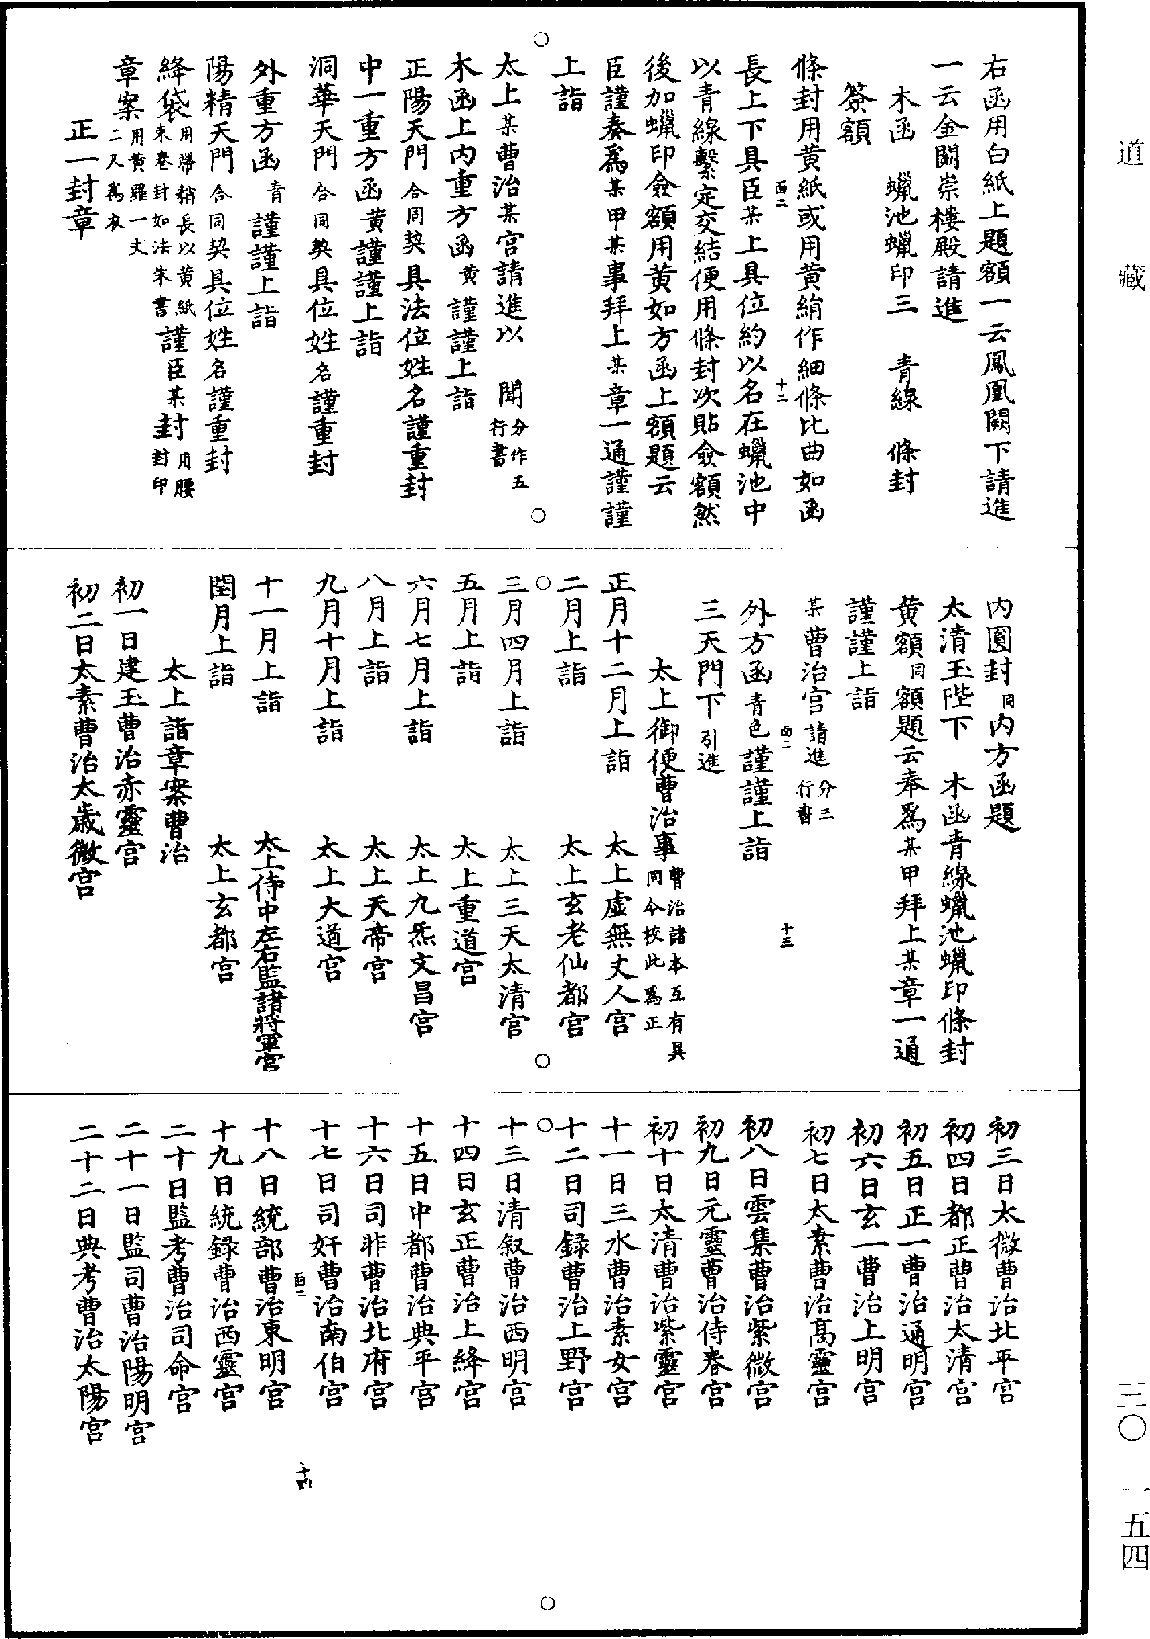 道藏
右函用白紙上題額一云鳳凰闕下請進
一云金闕崇樓殿請進
木函 蠟池蠟印三 青線 條封
簽額
條封用黃紙或用黃絹作細條比曲如函
長上下具臣某上具位約以名在蠟池中
以青線繫定交結便用條封次貼僉額然
後加蠟印僉額用黃如方函上額題云
臣謹奏為某甲某事拜上某章一通謹謹
上詣
太上某曹治某宮請進以 聞分作五行書
木函上內重方函黃謹謹上詣
正陽天門合同契具法位姓名謹重封
中一重方函黃謹謹上詣
洞華天門合同契具位姓名謹重封
外重方函青謹謹上詣
陽精天門合同契具位姓名謹重封
絳袋用帶稍長以黃紙朱卷封如法朱書謹臣某封用腰封印
章案用黃羅一丈二尺為衣
正一封章
內圓封同內方函題
太清玉陛下 木函青線蠟池蠟印條封
黃額同額題云奉為某甲拜上某章一通
謹謹上詣
某曹治宮請進分三行書
外方函青色謹謹上詣
三天門下引進
太上御便曹治事曹治諸本互有異同今校此為正
正月十二月上詣 太上虛無丈人宮
二月上詣 太上玄老仙都宮
三月四月上詣 太上三天太清宮
五月上詣 太上重道宮
六月七月上詣 太上九炁文昌宮
八月上詣 太上天帝宮
九月十月上詣 太上大道宮
十一月上詣 太上侍中左右監諸將軍宮
閏月上詣 太上玄都宮
太上詣章案曹治
初一日建玉曹治赤靈宮
初二日太素曹治太歲微宮
初三日太微曹治北平宮
初四日都正曹治太清宮
初五日正一曹治通明宮
初六日玄一曹治上明宮
初七日太素曹治高靈宮
初八日雲集曹治紫微宮
初九日元靈曹治侍春宮
初十日太清曹治紫靈宮
十一日三水曹治素女宮
十二日司錄曹治上野宮
十三日清叙曹治西明宮
十四日玄正曹治上絳宮
十五日中都曹治典平宮
十六日司非曹治北府宮
十七日司奸曹治南伯宮
十八日統部曹治東明宮
十九日統錄曹治西靈宮
二十日監考曹治司命宮
二十一日監司曹治陽明宮
二十二日典考曹治太陽宮
三〇 一五四